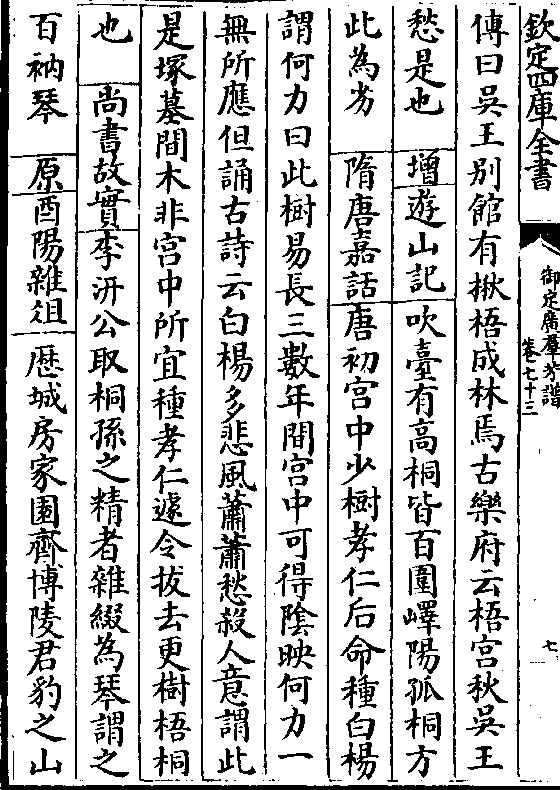 欽定四庫全書
御定廣羣芳譜
卷七十三
七
傳曰吳王别館有楸梧成林焉古樂府云梧宮秋吳王
愁是也 增 遊山記 吹臺有高桐皆百圍嶧陽孤桐方
此為劣 隋唐嘉話 唐初宮中少樹孝仁后命種白楊
謂何力曰此樹易長三數年間宮中可得陰映何力一
無所應但誦古詩云白楊多悲風蕭蕭愁殺人意謂此
是塚墓間木非宮中所宜種孝仁遽令拔去更樹梧桐
也 尚書故實 李汧公取桐孫之精者雜綴為琴謂之
百衲琴 原 酉陽雜俎 歴城房家園齊博陵君豹之山